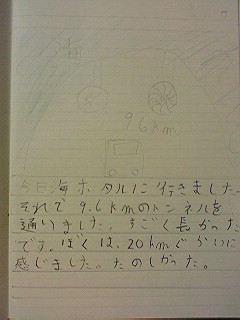 海
9.6km
今日海ホタルに行きました。
それで9.6kmのトンネルを
通りました。すごく長かった
です。ぼくは、20kmぐらいに
感じました。たのしかった。